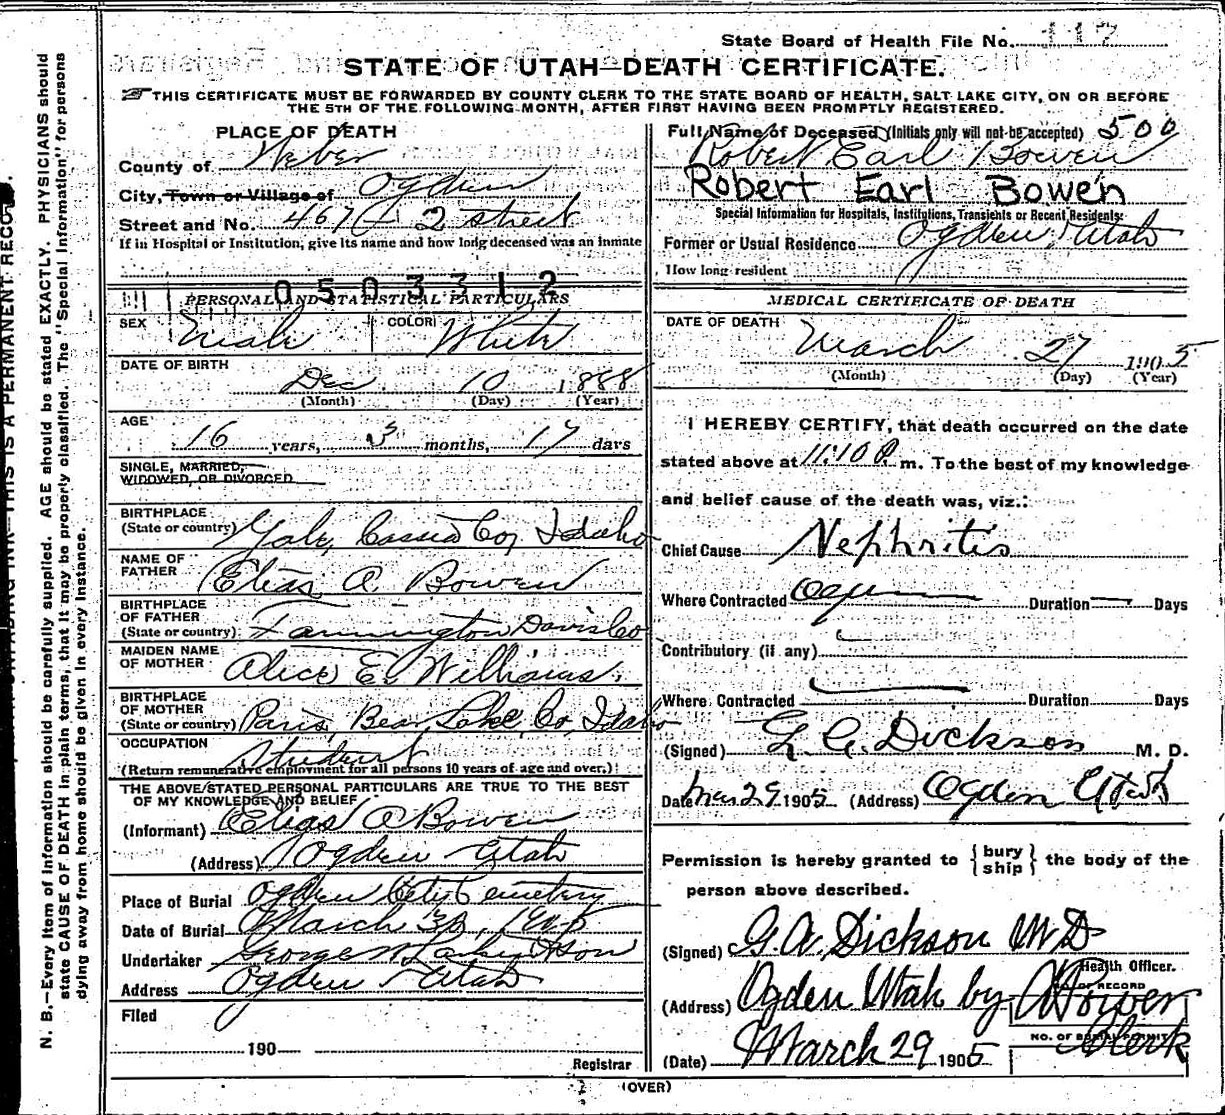 State Board of Health File No. 117
STATE OF UTAH—DEATH CERTIFICATE.
THIS CERTIFICATE MUST BE FORWARDED BY COUNTY CLERK TO THE STATE BOARD OF HEALTH, SALT LAKE CITY, ON OR BEFORE
THE 5TH OF THE FOLLOWING MONTH, AFTER FIRST HAVING BEEN PROMPTLY REGISTERED.
PLACE OF DEATH
County of Weber
City, Town or Village of Ogden
Street and No. 467 2 street
If in Hospital or Institution, give its name and how long deceased was an inmate
0503312
PERSONAL AND STATISTICAL PARTICULARS
SEX Male COLOR White
DATE OF BIRTH
Dec 10 1888
(Month) (Day) (Year)
AGE
16 years, 3 months, 17 days
SINGLE, MARRIED,
WIDOWED, OR DIVORCED
BIRTHPLACE
(State or country) Yale, Cassia Co, Idaho
NAME OF
FATHER Elias A. Bowen
BIRTHPLACE
OF FATHER
(State or country) Farmington Davis Co
MAIDEN NAME
OF MOTHER Alice E. Williams
BIRTHPLACE
OF MOTHER
(State or country) Paris, Bear Lake, Co, Idaho
OCCUPATION Student
(Return remunerative employment for all persons 10 years of age and over.)
THE ABOVE STATED PERSONAL PARTICULARS ARE TRUE TO THE BEST
OF MY KNOWLEDGE AND BELIEF
(Informant) Elias A Bowen
(Address) Ogden Utah
Place of Burial Ogden City Cemetery
Date of Burial March 30, 1905
Undertaker George W Larkin & Son
Address Ogden Utah
Filed
190
Registrar
Full Name of Deceased (Initials only will not be accepted) 500
Robert Earl Bowen
Robert Earl Bowen
Special Information for Hospitals, Institutions, Transients or Recent Residents:
Former or Usual Residence Ogden, Utah
How long resident
MEDICAL CERTIFICATE OF DEATH
DATE OF DEATH
March 27 1905
(Month) (Day) (Year)
I HEREBY CERTIFY, that death occurred on the date
stated above at 11:10 P. m. To the best of my knowledge
and belief cause of the death was, viz.:
Chief Cause Nephritis
Where Contracted Duration Days
Contributory (if any)
Where Contracted Duration Days
(Signed) G. A. Dickson M. D.
Date Mar 29 1905 (Address) Ogden Utah
Permission is hereby granted to { bury
ship } the body of the
person above described.
(Signed) G. A. Dickson MD
Health Officer.
(Address) Ogden Utah by Bowen
NO. OF RECORD
Clerk
NO. OF BURIAL PERMIT
(Date) March 29 1905
(OVER)
N. B.—Every item of information should be carefully supplied. AGE should be stated EXACTLY. PHYSICIANS should
state CAUSE OF DEATH in plain terms, that it may be properly classified. The "Special Information" for persons
dying away from home should be given in every instance.
INK—THIS IS A PERMANENT RECORD.